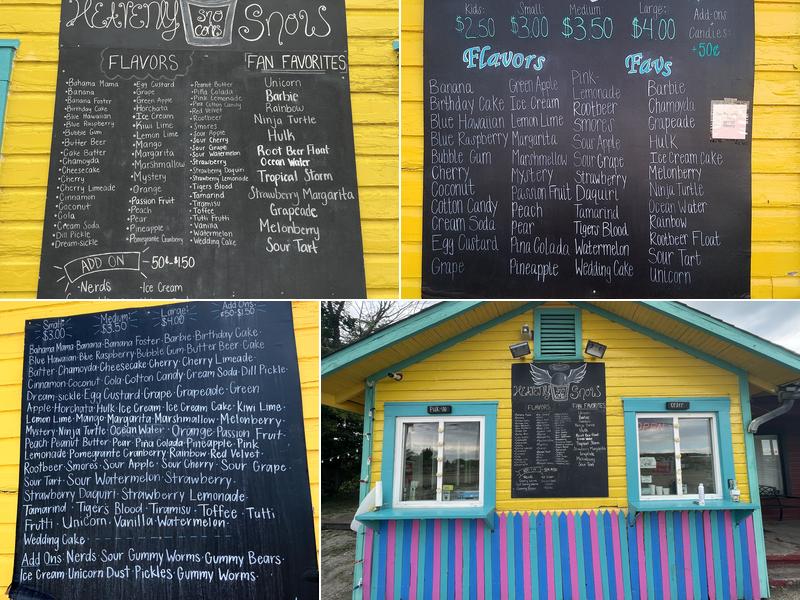 HEAVENLY SNO CONES SNOW
FLAVORS
•Bahama Mama
•Banana
•Banana Foster
•Birthday Cake
•Blue Hawaiian
•Blue Raspberry
•Bubble Gum
•Butter Beer
•Cake Batter
•Chamoyda
•Cheesecake
•Cherry
•Cherry Limeade
•Cinnamon
•Coconut
•Cola
•Cream Soda
•Dill Pickle
•Dream-sickle
•Egg Custard
•Grape
•Green Apple
•Horchata
•Ice Cream
•Kiwi Lime
•Lemon Lime
•Mango
•Margarita
•Marshmallow
•Mystery
•Orange
•Passion Fruit
•Peach
•Pear
•Pineapple
•Pomegranate Cranberry
•Peanut Butter
•Piña Colada
•Pink Lemonade
•Pink Cotton Candy
•Red Velvet
•Rootbeer
•Smores
•Sour Apple
•Sour Cherry
•Sour Grape
•Sour Watermelon
•Strawberry
•Strawberry Daquiri
•Strawberry Lemonade
•Tigers Blood
•Tamarind
•Tiramisu
•Toffee
•Tutti Frutti
•Vanilla
•Watermelon
•Wedding Cake
FAN FAVORITES
Unicorn
Barbie
Rainbow
Ninja Turtle
Hulk
Root Beer Float
Ocean Water
Tropical Storm
Strawberry Margarita
Grapeade
Melonberry
Sour Tart
ADD ON -50¢-$1.50
•Nerds •Ice Cream
Kids: Small: Medium: Large:
$2.50 $3.00 $3.50 $4.00
Add-ons
Candies:
+50¢
Flavors
Banana
Birthday Cake
Blue Hawaiian
Blue Raspberry
Bubble Gum
Cherry
Coconut
Cotton Candy
Cream Soda
Egg Custard
Grape
Green Apple
Ice Cream
Lemon Lime
Margarita
Marshmallow
Mystery
Passion Fruit
Peach
Pear
Pina Colada
Pineapple
Pink-
Lemonade
Rootbeer
Smores
Sour Apple
Sour Grape
Strawberry
Daquiri
Tamarind
Tigers Blood
Watermelon
Wedding Cake
Favs
Barbie
Chamoyda
Grapeade
Hulk
Ice Cream Cake
Melonberry
Ninja Turtle
Ocean Water
Rainbow
Rootbeer Float
Sour Tart
Unicorn
Small: Medium: Large: Add Ons:
$3.00 $3.50 $4.00 $.50-$1.50
Bahama Mama·Banana·Banana Foster·Barbie·Birthday Cake·
Blue Hawaiian·Blue Raspberry·Bubble Gum·Butter Beer·Cake
Batter·Chamoyda·Cheesecake·Cherry·Cherry Limeade·
Cinnamon·Coconut·Cola·Cotton Candy·Cream Soda·Dill Pickle·
Dream-sickle·Egg Custard·Grape·Grapeade·Green
Apple·Horchata·Hulk·Ice Cream·Ice Cream Cake·Kiwi Lime·
Lemon Lime·Mango·Margarita·Marshmallow·Melonberry·
Mystery·Ninja Turtle·Ocean Water·Orange·Passion Fruit·
Peach·Peanut Butter·Pear·Piña Colada·Pineapple·Pink
Lemonade·Pomegranate Cranberry·Rainbow·Red Velvet·
Rootbeer·Smores·Sour Apple·Sour Cherry·Sour Grape·
Sour Tart·Sour Watermelon·Strawberry·
Strawberry Daquiri·Strawberry Lemonade·
Tamarind·Tiger's Blood·Tiramisu·Toffee·Tutti
Frutti·Unicorn·Vanilla·Watermelon·
Wedding Cake·
Add Ons: Nerds·Sour Gummy Worms·Gummy Bears·
Ice Cream·Unicorn Dust·Pickles·Gummy Worms·
HEAVENLY SNOW
FLAVORS FAN FAVORITES
PICK-UP
ORDER
OPEN